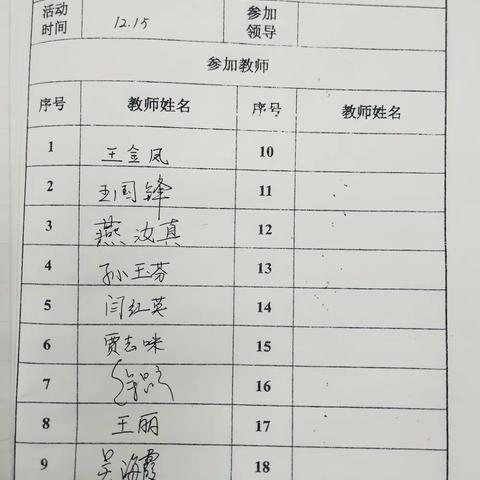 活动时间 12.15 参加领导
参加教师
序号 教师姓名 序号 教师姓名
1 王金凤 10
2 王国锋 11
3 燕汝真 12
4 孙玉芬 13
5 闫红英 14
6 贾志咪 15
7 16
8 王丽 17
9 吴海霞 18